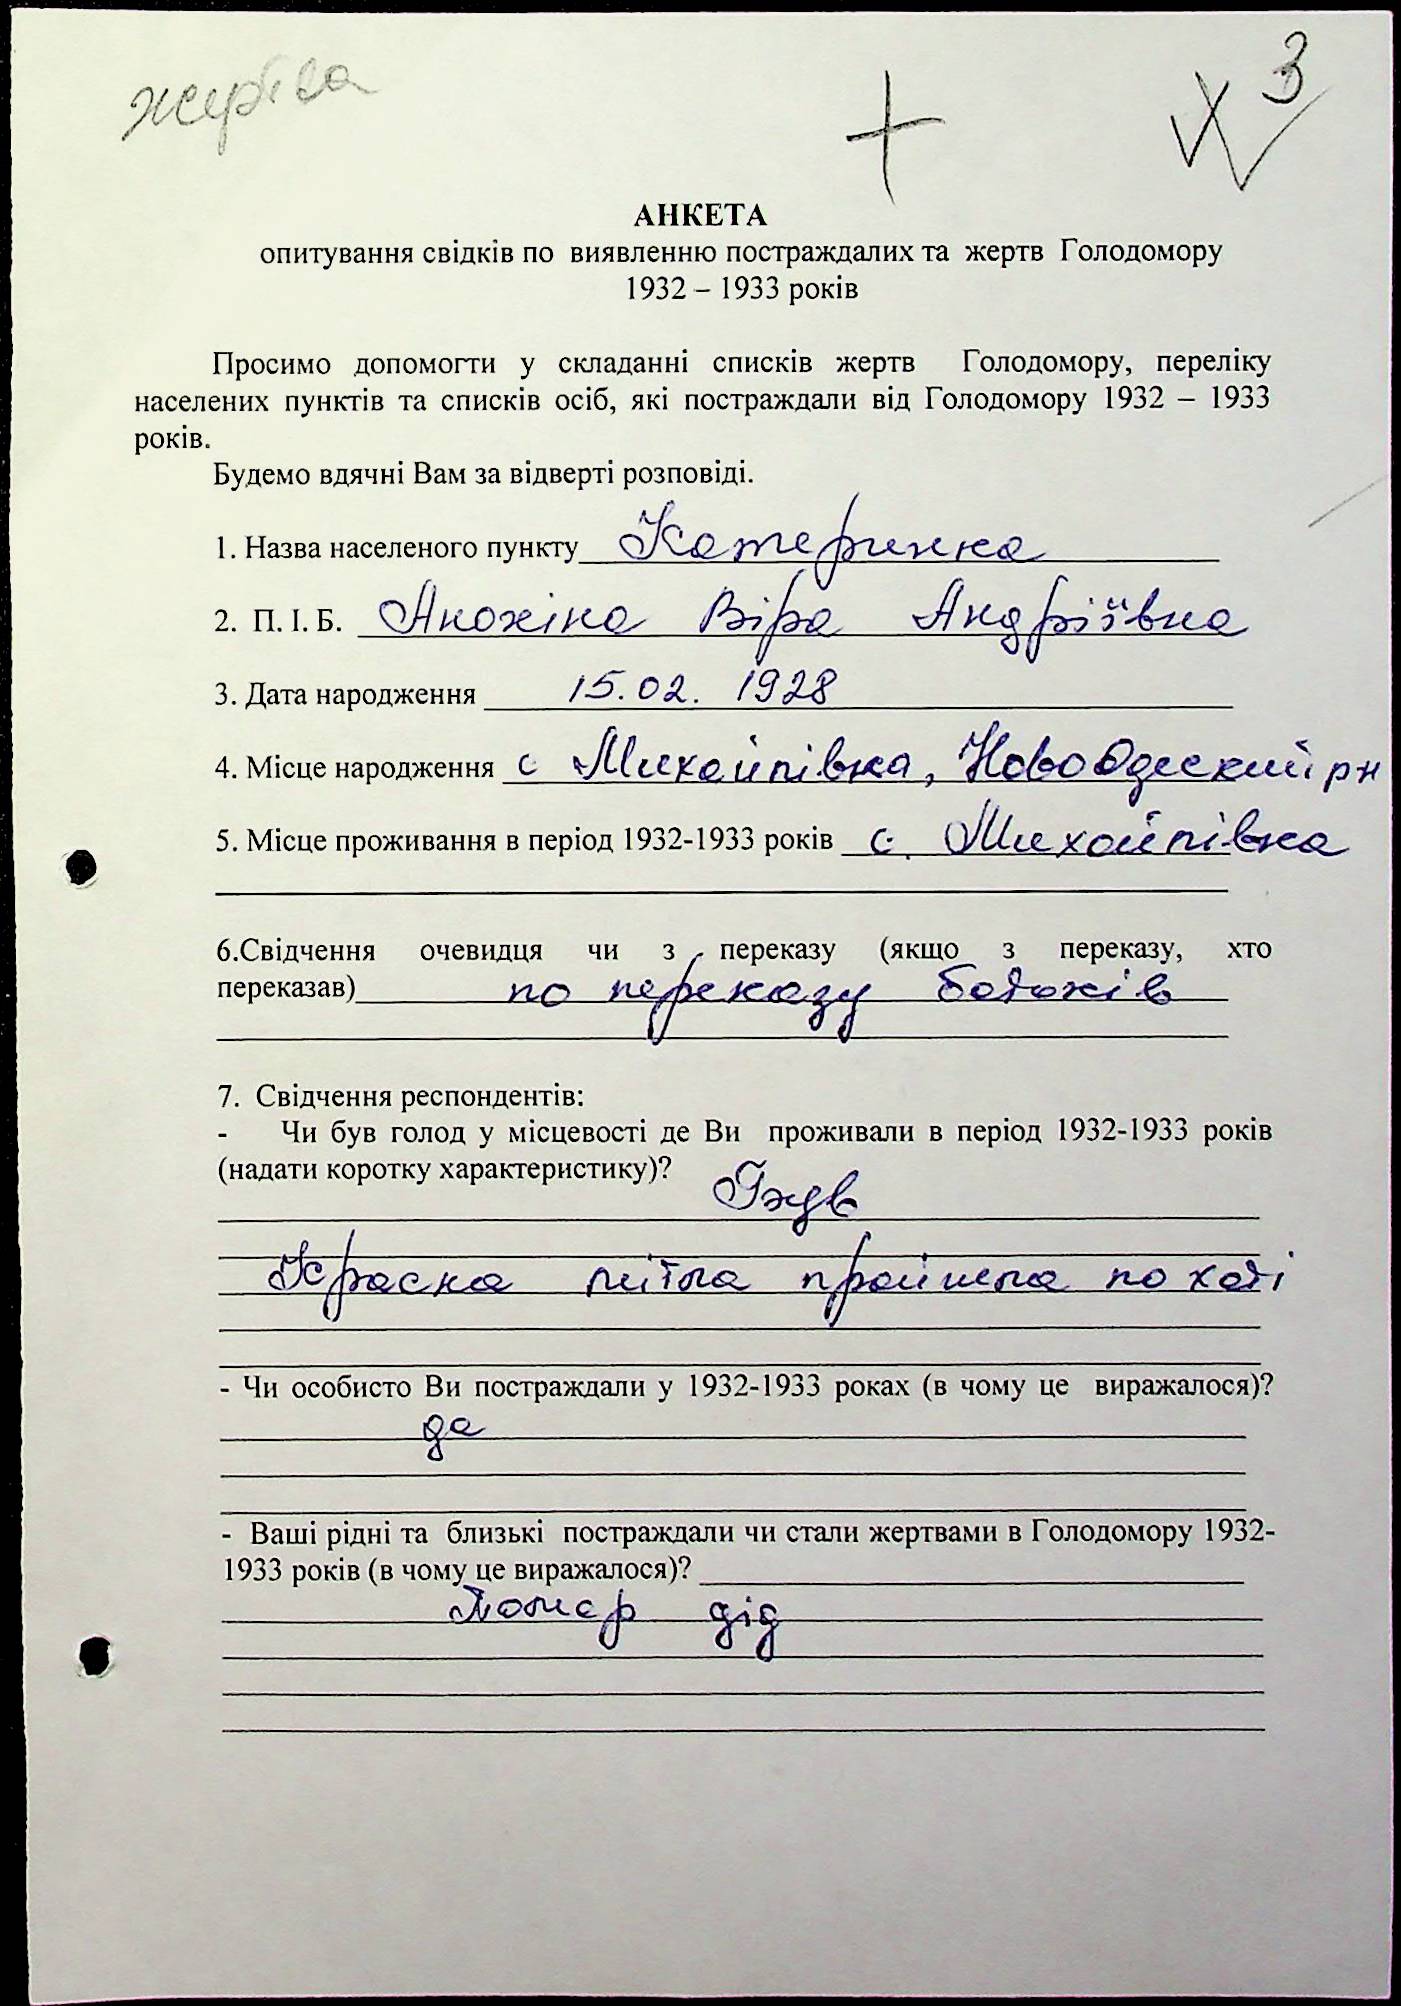 жертва
+
3
АНКЕТА
опитування свідків по виявленню постраждалих та жертв Голодомору
1932 – 1933 років
Просимо допомогти у складанні списків жертв Голодомору, переліку
населених пунктів та списків осіб, які постраждали від Голодомору 1932 – 1933
років.
Будемо вдячні Вам за відверті розповіді.
1. Назва населеного пункту Катеринка
2. П. І. Б. Анохіна Віра Андріївна
3. Дата народження 15.02. 1928
4. Місце народження с Михайлівка, Новоодеский рн
5. Місце проживання в період 1932-1933 років с. Михайлівка
6.Свідчення очевидця чи з переказу (якщо з переказу, хто
переказав) по переказу батьків
7. Свідчення респондентів:
- Чи був голод у місцевості де Ви проживали в період 1932-1933 років
(надати коротку характеристику)?
Красна мітла пройшла по хаті
- Чи особисто Ви постраждали у 1932-1933 роках (в чому це виражалося)?
да
- Ваші рідні та близькі постраждали чи стали жертвами в Голодомору 1932-
1933 років (в чому це виражалося)?
Помер дід